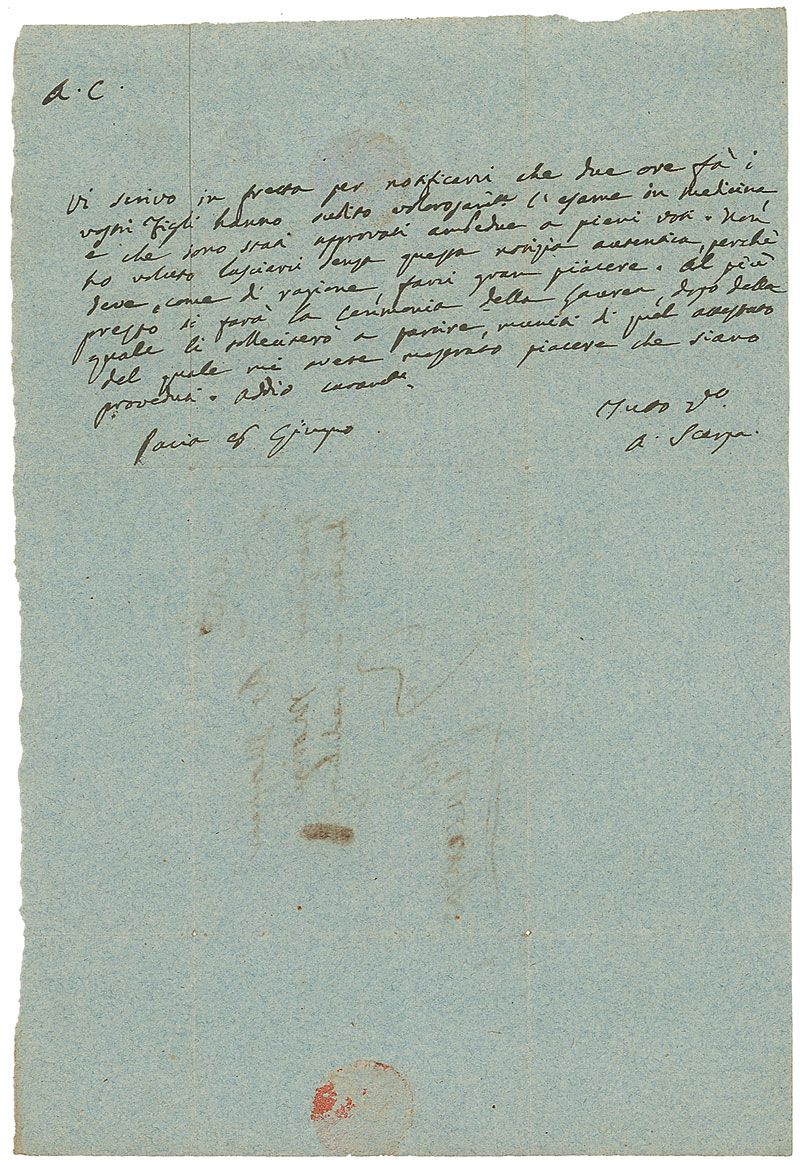 A. C.
Vi scrivo in fretta per notificarvi che due ore fà i
vostri Figli hanno subito valorosamte l'esame in medicina,
e che sono stati approvati ambedue a pieni voti. Non
ho voluto lasciarvi senza questa notizia autentica, perchè
deve, come di ragione, farvi gran piacere. Al più
presto si farà la Cerimonia della Laurea, dopo della
quale li solleciterò a partire, muniti di quel attestato
del quale mi avete mostrato piacere che siano
proveduti. Addio
Pavia 26 Giugno
Tutto vro.
A. Scarpa.